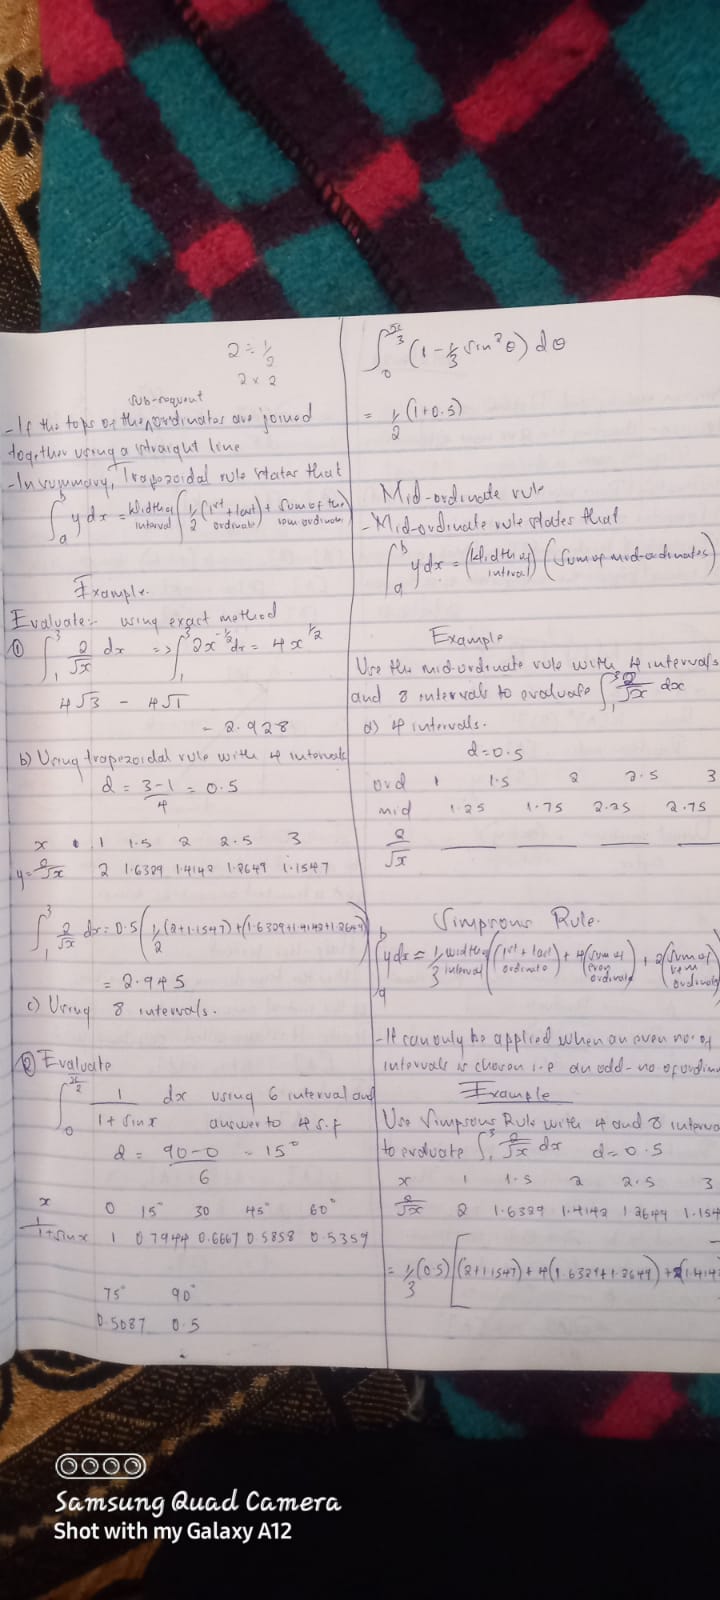 2 ÷ 1/2
2 x 2
sub-sequent
- If the tops of the ordinates are joined
together using a straight line
- In summary, Trapezoidal rule states that
∫ₐᵇ y dx = (Width of interval) (1/2 (1st + last ordinate) + Sum of the rem ordinates)
Example.
Evaluate:- using exact method
① ∫₁³ 2/√x dx => ∫₁³ 2x^(-1/2) dx = 4x^(1/2)
4√3 - 4√1
= 2.928
b) Using trapezoidal rule with 4 intervals
d = (3-1)/4 = 0.5
x 1 1.5 2 2.5 3
y = 2/√x 2 1.6329 1.4142 1.2649 1.1547
∫₁³ 2/√x dx = 0.5 (1/2 (2+1.1547) + (1.6329+1.4142+1.2649))
= 2.945
c) Using 8 intervals.
② Evaluate
∫₀^(π/2) 1/(1+sin x) dx using 6 interval and
answer to 4 s.f
d = (90-0)/6 = 15°
x 0 15° 30 45° 60°
1/(1+sin x) 1 0.7944 0.6667 0.5858 0.5359
75° 90°
0.5087 0.5
∫₀^(π/3) (1 - 1/3 sin²θ) dθ
= 1/2 (1+0.5)
Mid-ordinate rule
- Mid-ordinate rule states that
∫ₐᵇ y dx = (Width of interval) (Sum of mid-ordinates)
Example
Use the mid-ordinate rule with 4 intervals
and 8 intervals to evaluate ∫₁³ 2/√x dx
a) 4 intervals.
d = 0.5
ord 1 1.5 2 2.5 3
mid 1.25 1.75 2.25 2.75
2/√x
Simprons Rule.
∫ₐᵇ y dx = 1/3 (width of interval) ((1st + last ordinate) + 4 (sum of even ordinate) + 2 (sum of rem ordinate))
- It can only be applied when an even no. of
intervals is chosen i.e an odd-no of ordin
Example
Use Simprons Rule with 4 and 8 interva
to evaluate ∫₁³ 2/√x dx d = 0.5
x 1 1.5 2 2.5 3
2/√x 2 1.6329 1.4142 1.2649 1.154
= 1/3 (0.5) [(2+1.1547) + 4(1.6329+1.2649) + 2(1.414
Samsung Quad Camera
Shot with my Galaxy A12